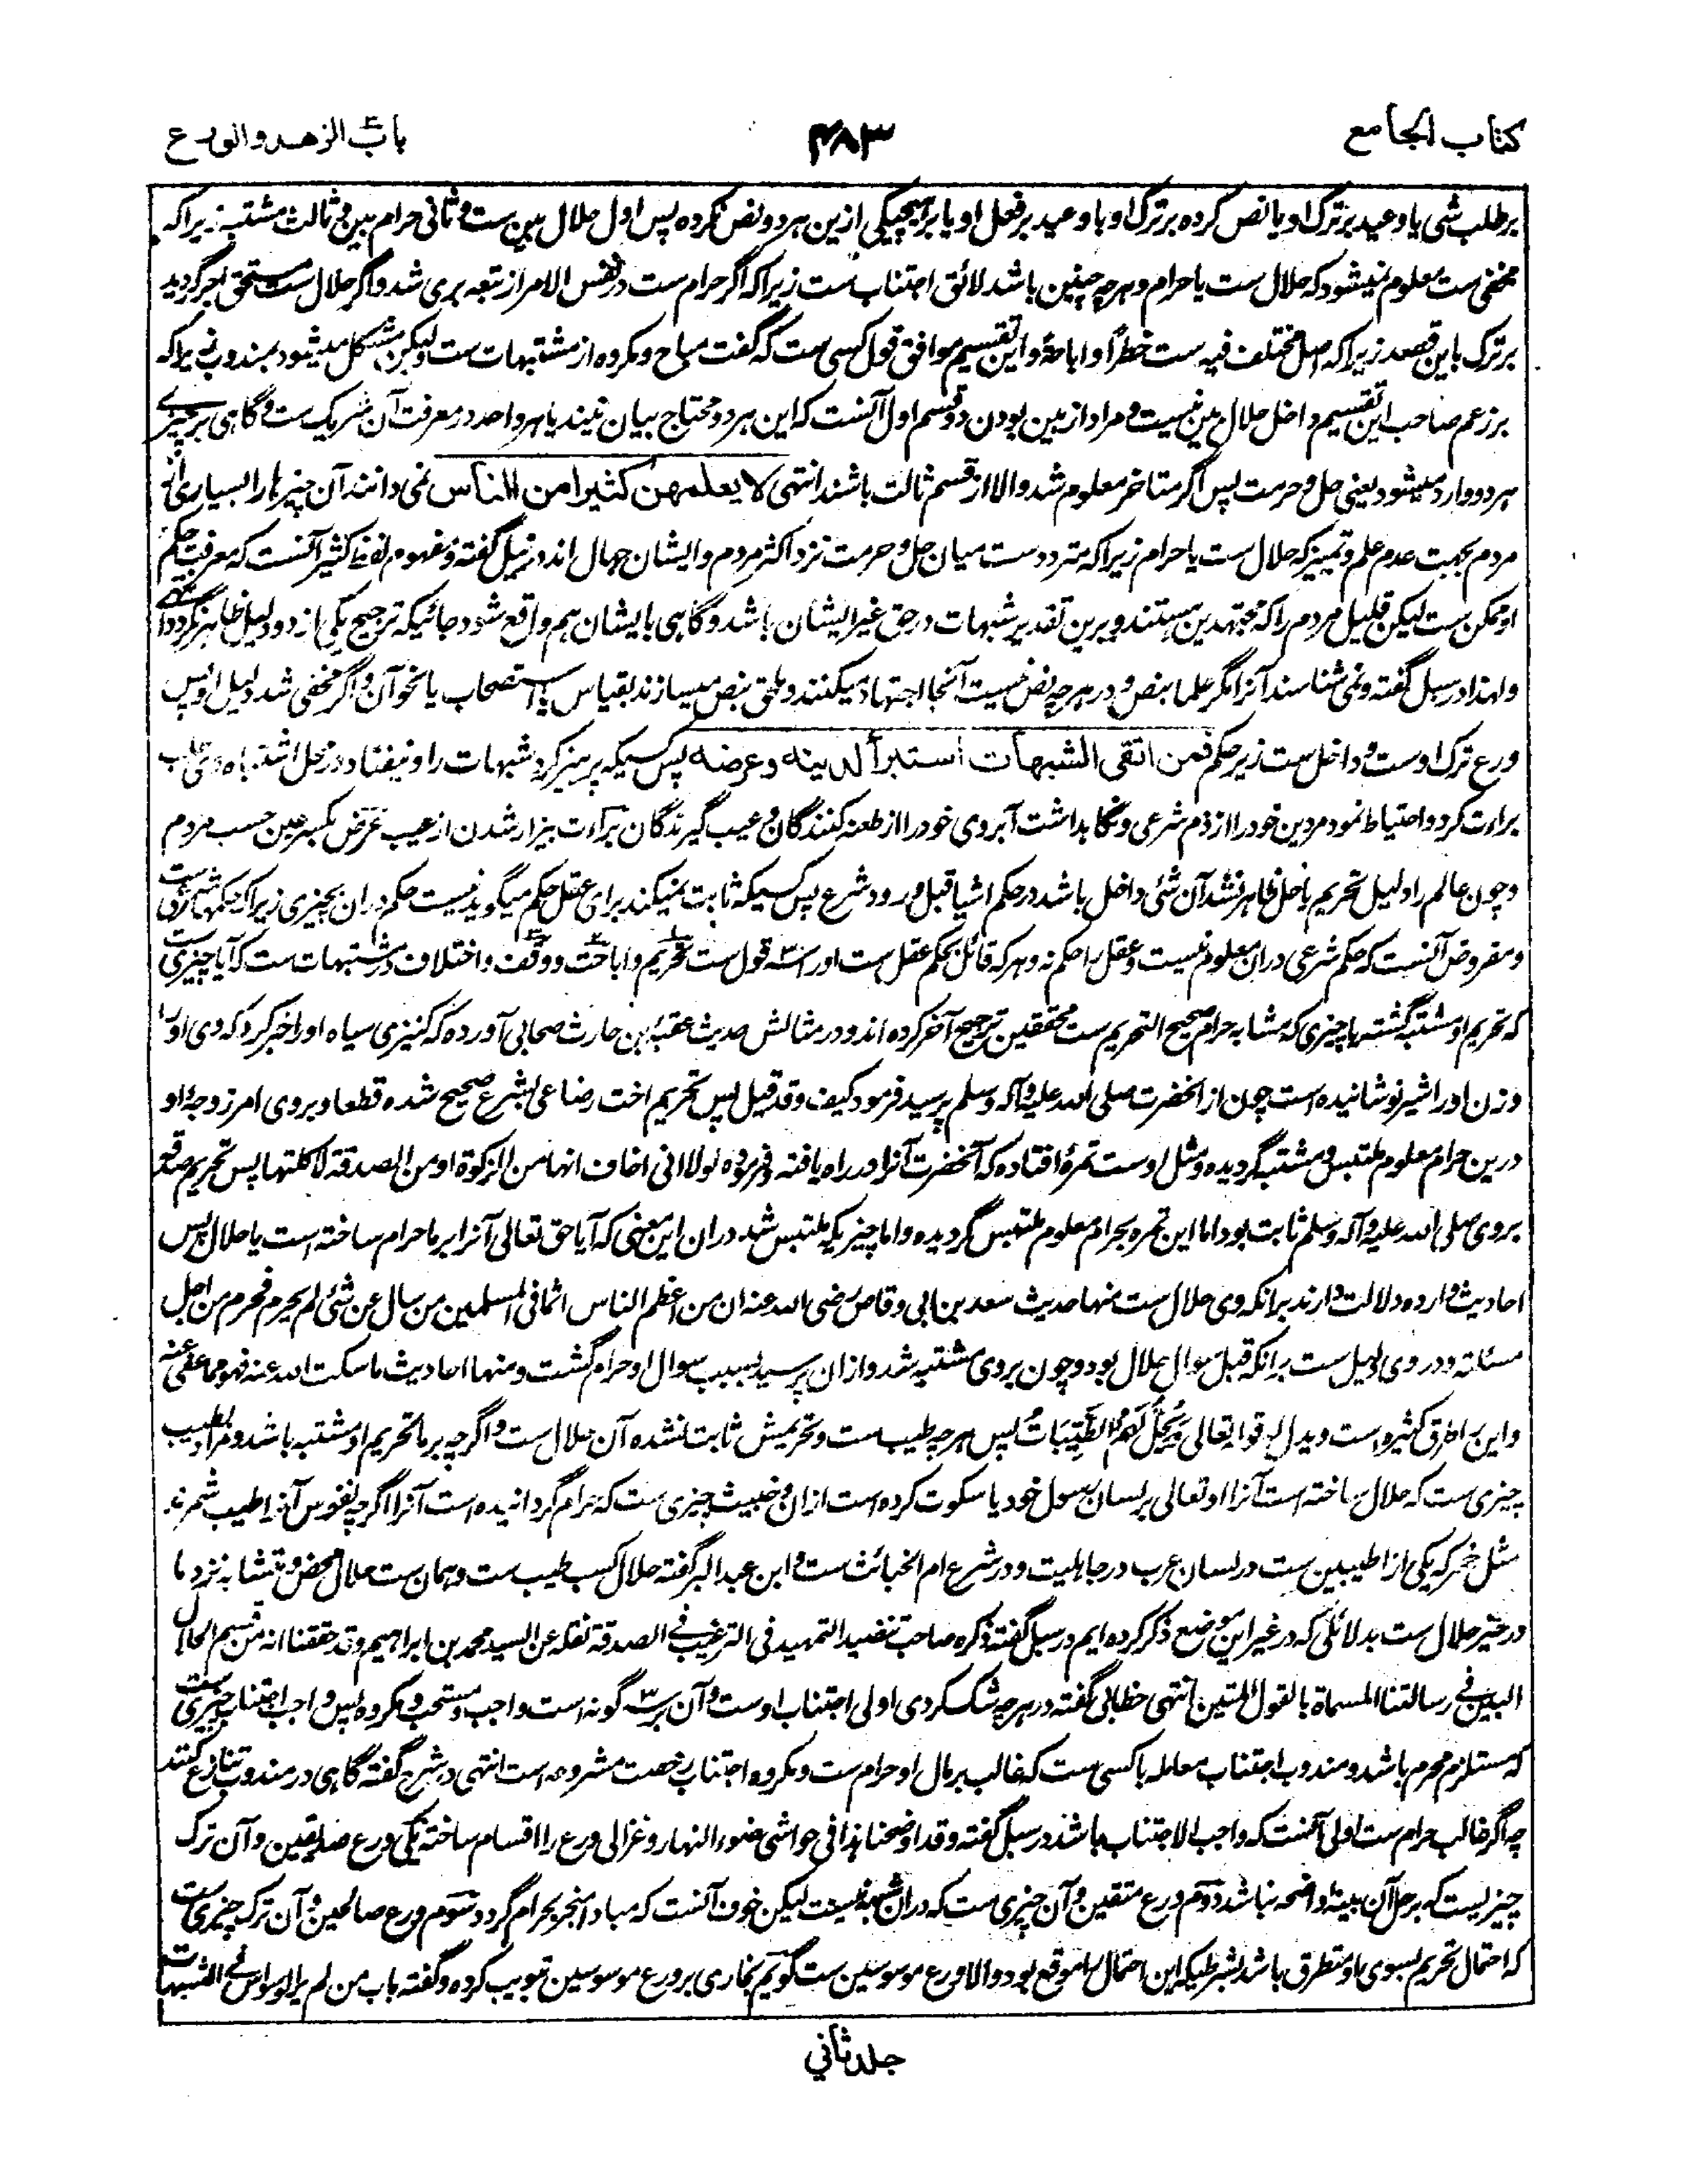 کتاب الجامع
۴۸۳
باب الزهد والورع
برطلب شی یا وعید بر ترک او یا نص کرده بر ترک او با وعید بر فعل او یا بر هیچیکی ازین هر دو نص نکرده پس اول حلال بین ست و ثانی حرام بین و ثالث مشتبه زیراکه
مخفی ست معلوم نمیشود که حلال ست یا حرام و هرچه چنین باشد لائق اجتناب ست زیراکه اگر حرام ست در نفس الامر از تبعه بری شد و اگر حلال ست مستحق اجر گردید
بر ترک باین قصد زیراکه اصل مختلف فیه ست خطراً و اباحةً و این تقسیم موافق قول کسی ست که گفت مباح و مکروه از مشتبهات ست ولیکن مشکل میشود بمندوب زیراکه
بر زعم صاحب این تقسیم داخل حلال بین نیست و مراد از بین بودن دو قسم اول آنست که این هر دو محتاج بیان نیند یا هر واحد در معرفت آن شریک ست و گاهی بر چیزے
هر دو وارد میشود یعنی حل و حرمت پس اگر متاخر معلوم شد والا از قسم ثالث باشند انتهی لا یعلمهن کثیرا من الناس نمی دانند آن چیزها را بسیاری از
مردم بجهت عدم علم و تمییز که حلال ست یا حرام زیراکه متردد ست میان حل و حرمت نزد اکثر مردم و ایشان جهال اند در نیل گفته و مفهوم لفظ کثیر آنست که معرفت حکم
او ممکن ست لیکن قلیل مردم را که مجتهدین هستند و برین تقدیر شبهات در حق غیر ایشان باشد و گاهی بایشان هم واقع شود جائیکه ترجیح یکی از دو دلیل ظاهر نگردد انتهے
ولهذا در سبل گفته و نمی شناسد آنرا مگر علما بنص و در هرچه نص نیست آنجا اجتهاد میکنند و ملحق بنص میسازند بقیاس یا استصحاب یا نحو آن و اگر مخفی شد دلیل او پس
ورع ترک اوست و داخل ست زیر حکم فمن اتقی الشبهات استبرأ لدینه وعرضه پس کسیکه پرهیز کرد شبهات را و نیفتاد در محل اشتباه وی طلب
براءت کرد و احتیاط نمود مر دین خود را از ذم شرعی و نگاهداشت آبروی خود را از طعنه کنندگان و عیب گیرندگان براءت بیزار شدن از عیب عرض بکسر عین حسب مردم
و چون عالم را دلیل تحریم یا حل ظاهر نشد آن شئی داخل باشد در حکم اشیا قبل ورود شرع پس کسیکه ثابت نمیکند برای عقل حکم میگوید نیست حکم دران بچیزی زیراکه حکمها شرعی ست
و مفروض آنست که حکم شرعی دران معلوم نیست و عقل را حکم نه و هرکه قائل بحکم عقل ست او را سه قول ست تحریم و اباحت و وقف و اختلاف در مشتبهات ست که آیا چیزی ست
که تحریم او مشتبه گشته یا چیزی که مشابه حرام صحیح التحریم ست محققین ترجیح آخر کرده اند و در مثالش حدیث عقبه بن حارث صحابی آورده که کنیزی سیاه او را خبر کرد که وی او را
و زن او را شیر نوشانیده است چون از آنحضرت صلی الله علیه وآله وسلم پرسید فرمود کیف وقد قیل پس تحریم اخت رضاعی بشرع صحیح شده قطعا و بروی امر زوجهٔ او
درین حرام معلوم ملتبس و مشتبه گردیده و مثل اوست تمرهٔ افتاده که آنحضرت آنرا در راه یافته و فرموده لولا انی اخاف انها من الزکوة او من الصدقة لاکلتها پس تحریم صدقه
بروی صلی الله علیه وآله وسلم ثابت بود اما این تمره بحرام معلوم ملتبس گردیده و اما چیزیکه ملتبس شد دران این معنی که آیا حق تعالی آنرا بر ما حرام ساخته است یا حلال پس
احادیث وارده دلالت دارند برانکه وی حلال ست منها حدیث سعد بن ابی وقاص رضی الله عنه ان من اعظم الناس اثما فی المسلمین من سال عن شئی لم یحرم فحرم من اجل
مسئلته و در وی دلیل ست برانکه قبل سوال حلال بود و چون بروی مشتبه شد و ازان پرسید بسبب سوال او حرام گشت و منها احادیث ما سکت الله عنه فهو مما عفی عنه
و این را طرق کثیره است و یدل له قوله تعالی وَیُحِلُّ لَهُمُ الطَّیِّبَاتُ پس هرچه طیب ست و تحریمش ثابت نشده آن حلال ست و اگرچه بر ما تحریم او مشتبه باشد و مراد بطیب
چیزی ست که حلال ساخته است آنرا او تعالی بر لسان رسول خود یا سکوت کرده است ازان و خبیث چیزی ست که حرام گردانیده است آنرا اگرچه نفوس آنرا طیب شمرند
مثل خمر که یکی از اطیبین ست در لسان عرب در جاهلیت و در شرع ام الخبائث ست و ابن عبدالبر گفته حلال کسب طیب ست و همان ست حلال محض و متشابه نزد ما
در حیز حلال ست بدلائلی که در غیر این موضع ذکر کرده ایم در سبل گفته ذکره صاحب تنضید التمهید فی الترغیب فے الصدقة نقله عن السید محمد بن ابراهیم وقد حققنا انه من قسم الحلال
البین فے رسالتنا المسماة بالقول المتین انتهی خطابی گفته در هرچه شک کردی اولی اجتناب اوست و آن بر سه گونه است واجب و مستحب و مکروه پس واجب اجتناب چیزی ست
که مستلزم محرم باشد و مندوب اجتناب معامله با کسی ست که غالب بر مال او حرام ست و مکروه اجتناب رخصت مشروعه است انتهی در شرح گفته گاهی در مندوب تنازع کنند
چه اگر غالب حرام ست اولی آنست که واجب الاجتناب باشد در سبل گفته وقد اوضحنا هذا فی حواشی ضوء النهار و غزالی ورع را اقسام ساخته یکی ورع صدیقین و آن ترک
چیزیست که بر حل آن بینهٔ واضحه نباشد دوم ورع متقین و آن چیزی ست که دران شبه نیست لیکن خوف آنست که مبادا منجر بحرام گردد سوم ورع صالحین و آن ترک چیزی ست
که احتمال تحریم بسوی او متطرق باشد بشرطیکه این احتمال را موقع بود والا ورع موسوسین ست گویم بخاری بر ورع موسوسین تبویب کرده و گفته باب من لم یر الوساوس فے الشبهات
جلد ثانی